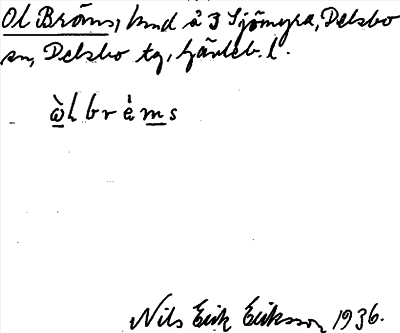 Ol Bröms, hmd å 3 Sjömyra, Delsbo
sn, Delsbo tg, Gävleb. l.
ὼl brὲms
Nils Erik Eriksson 1936.